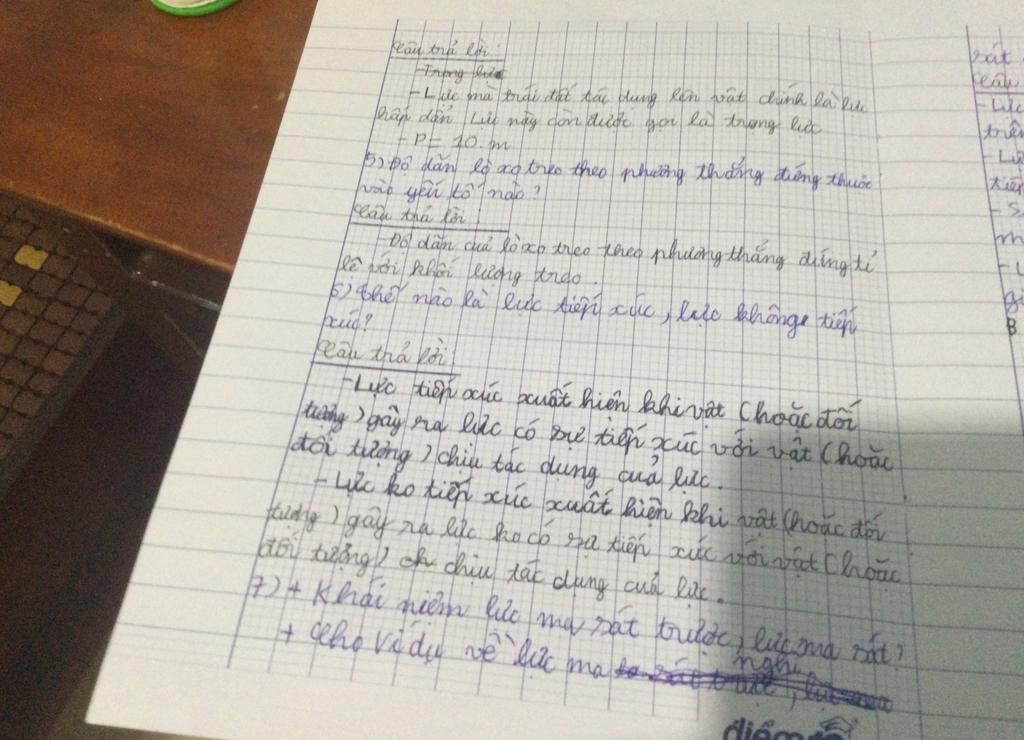 Câu trả lời:
- Trọng lực
- Lực mà trái đất tác dụng lên vật chính là lực
hấp dẫn. Lực này còn được gọi là trọng lực
- P = 10.m
5) Độ dãn lò xo treo theo phương thẳng đứng thuộc
vào yếu tố nào?
Câu trả lời:
- Độ dãn của lò xo treo theo phương thẳng đứng tỉ
lệ với khối lượng treo.
6) Thế nào là lực tiếp xúc, lực không tiếp
xúc?
Câu trả lời:
- Lực tiếp xúc xuất hiện khi vật (hoặc đối
tượng) gây ra lực có sự tiếp xúc với vật (hoặc
đối tượng) chịu tác dụng của lực.
- Lực ko tiếp xúc xuất hiện khi vật (hoặc đối
tượng) gây ra lực ko có sự tiếp xúc với vật (hoặc
đối tượng) chịu tác dụng của lực.
7) + Khái niệm lực ma sát trượt, lực ma sát?
nghỉ
+ Cho ví dụ về lực ma
sát
Câu
- Lực
trên
- Lực
tiếp
- S
m
- L
B